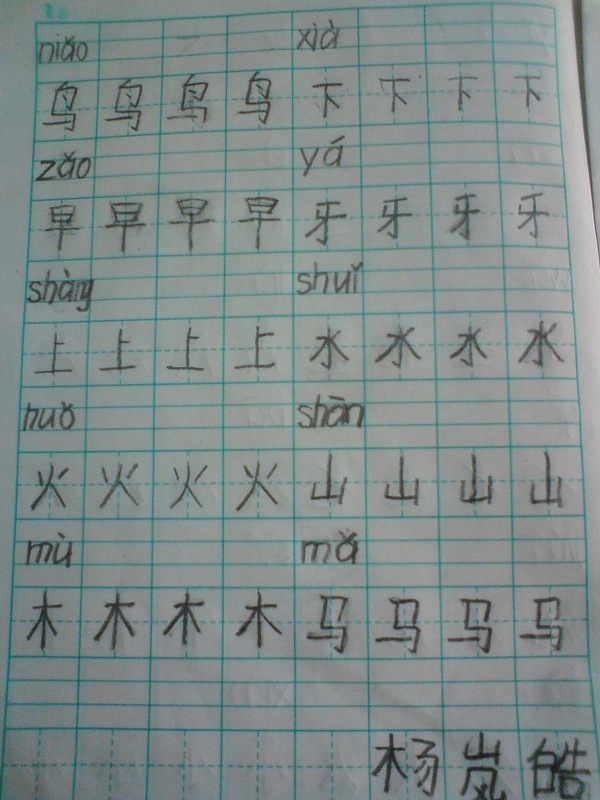 niǎo xià
鸟 鸟 鸟 鸟 下 下 下 下
zǎo yá
早 早 早 早 牙 牙 牙 牙
shàng shuǐ
上 上 上 上 水 水 水 水
huǒ shān
火 火 火 火 山 山 山 山
mù mǎ
木 木 木 木 马 马 马 马
杨 岚 皓